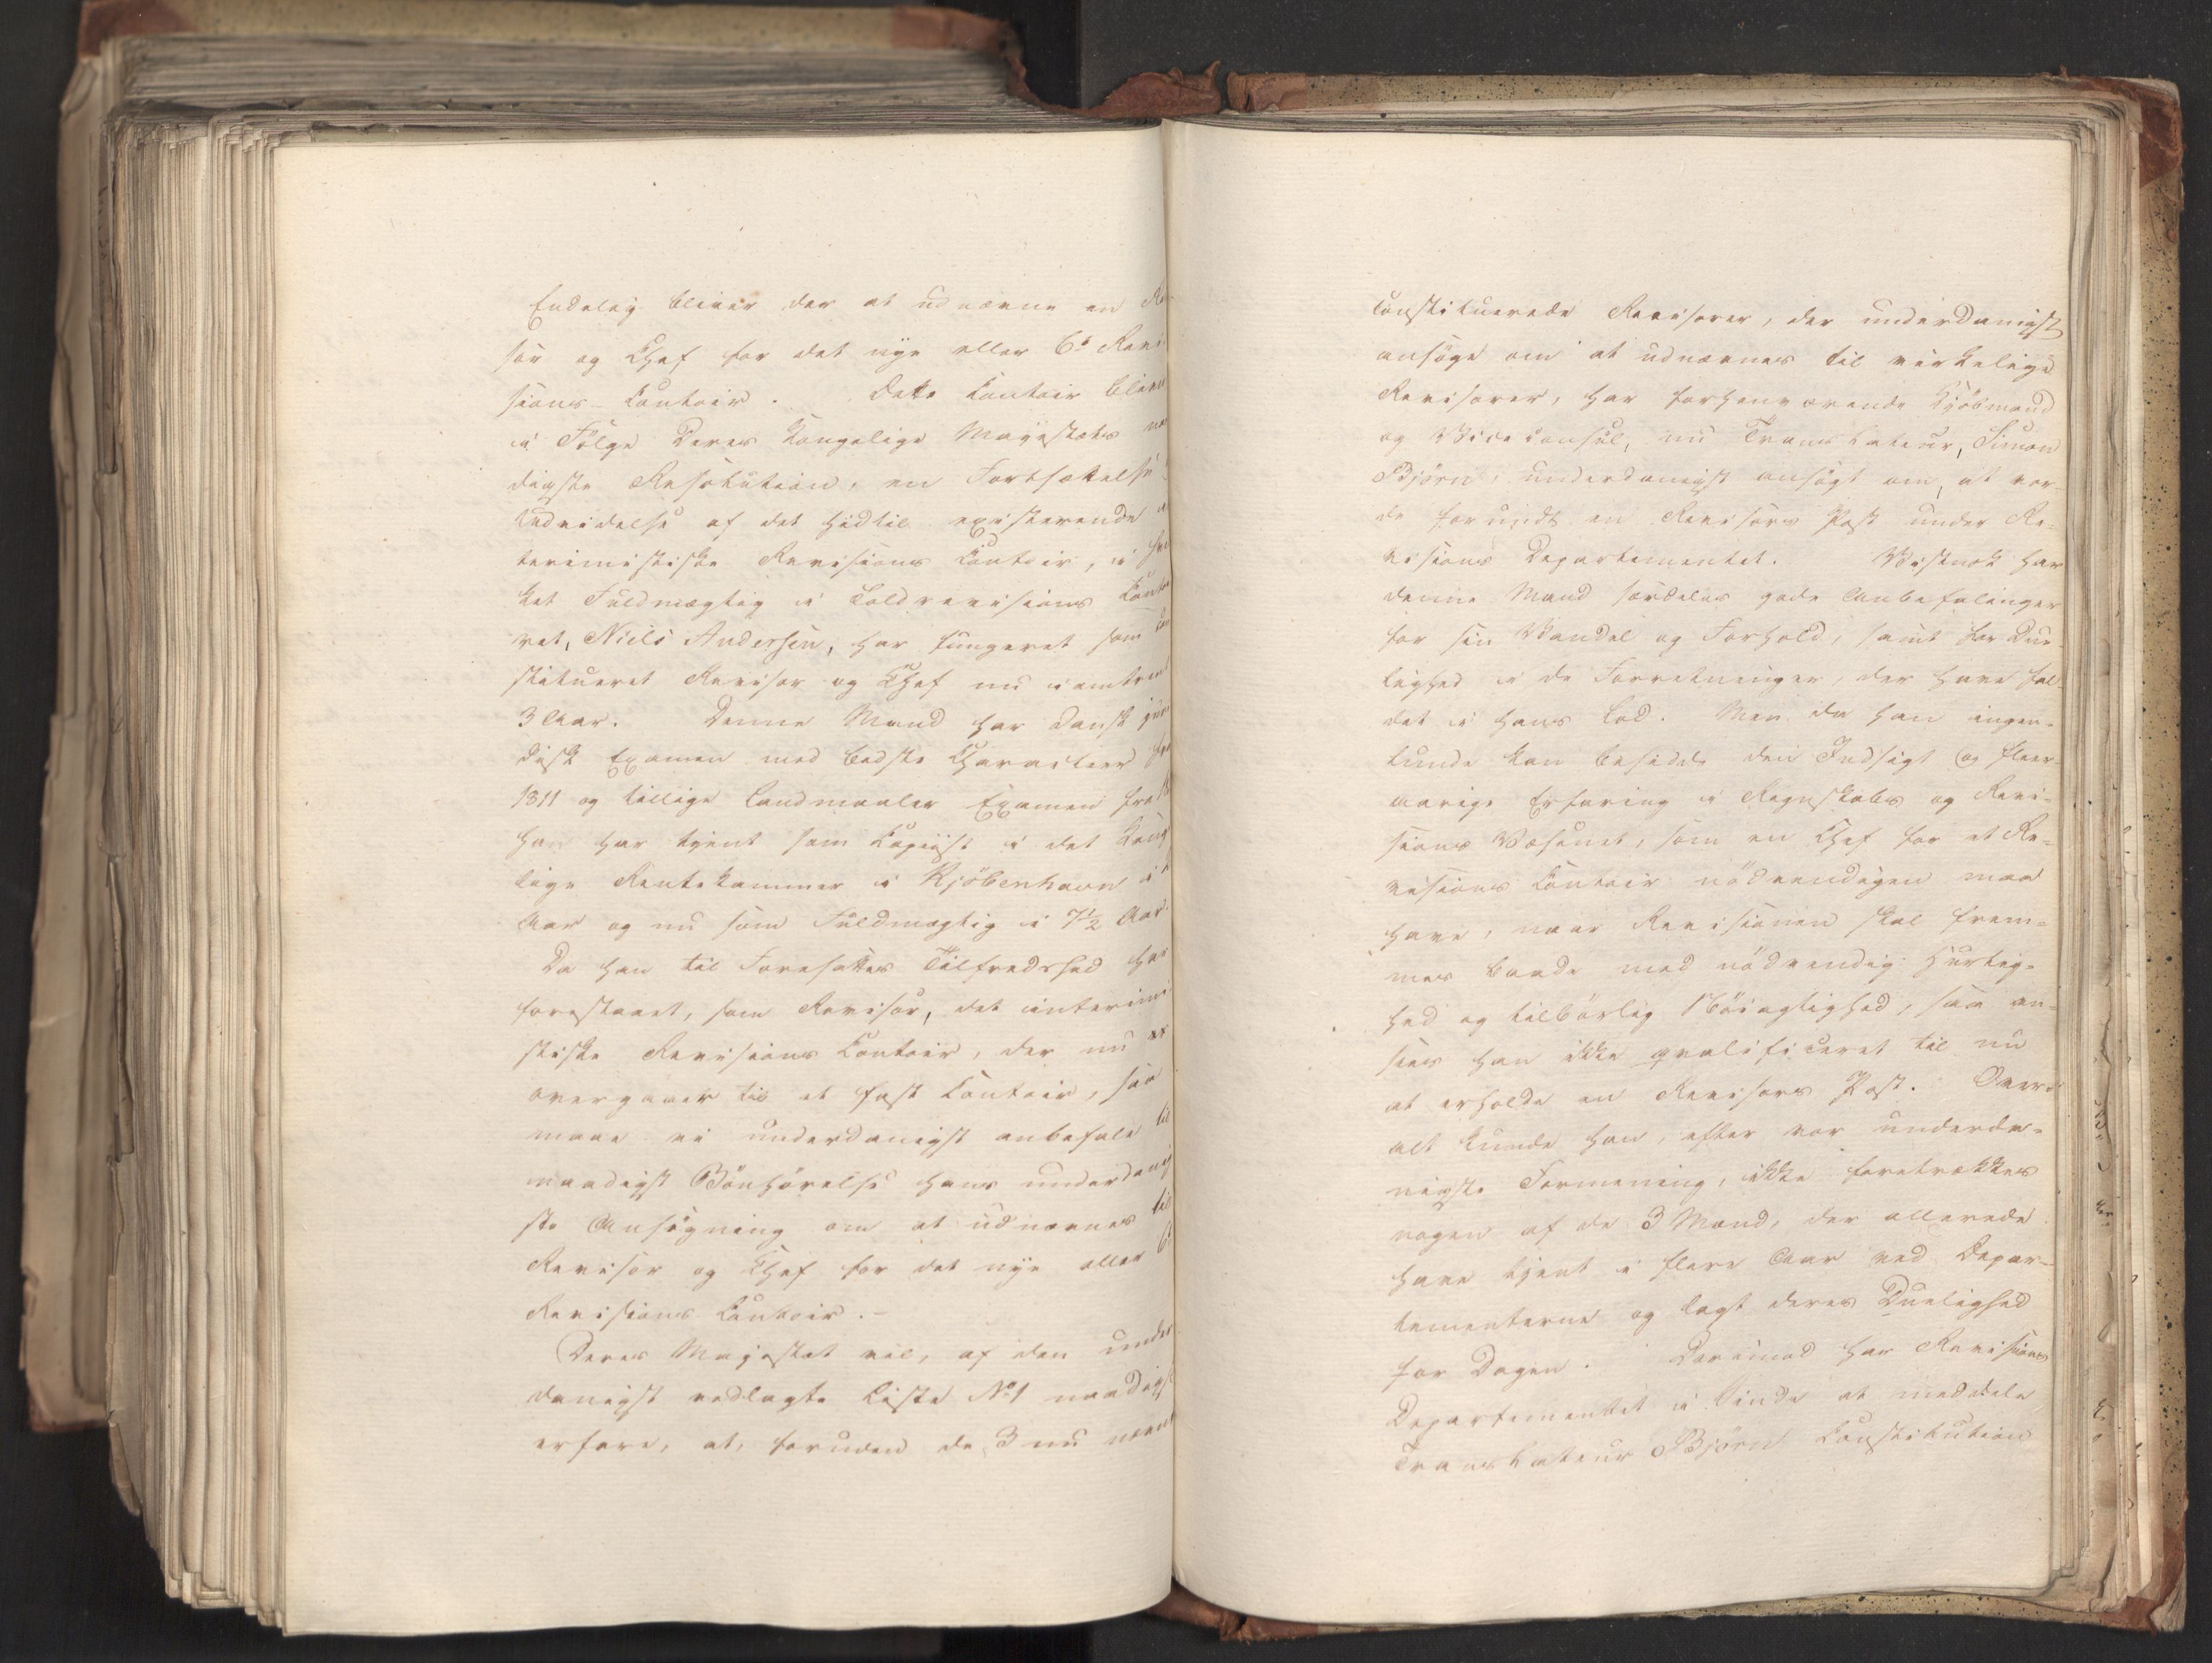 Endelig bliver der at udnævne en Re
sor og Chef for det nye eller 6te Revi
sions-Contoir. Dette Contoir bliver
i Følge Deres Kongelige Majestæts naa
digste Resolution, en Fortsættelse
Udvidelse af det hidtil existerende in
terimistiske Revisions Contoir, i hvil
ket Fuldmægtig i Toldrevisions Conto
ret, Niels Andersen, har fungeret som con
stitueret Revisor og Chef nu i omtrent
3 Aar. Denne Mand har dansk juri
disk Examen med bedste Characteer fra
1811 og tillige Landmaaler Examen fra
han har tjent som Copiist i det Konge
lige Rentekammer i Kjöbenhavn i
Aar og nu som Fuldmægtig i 7½ Aar.
Da han til Foresattes Tilfredshed har
forestaaet, som Revisor, det interimi
stiske Revisions Contoir, der nu
overgaaer til et fast Contoir, saa
maae vi underdanigst anbefale til
naadigst Bönhörelse hans underdanig
ste Ansögning om at udnævnes til
Revisor og Chef for det nye eller 6te
Revisions Contoir.-
Deres Majestæt vil, af den under
danigst vedlagte Liste No 1 naadigst
erfare, at, foruden de 3 nu nævnte
constituerede Revisorer, der underdanigst
ansöge om at udnævnes til virkelige
Revisorer, har forhenværende Kjöbmand
og Viceconsul, nu Translateur, Simon
Björn, underdanigst ansögt om, at vor-
de forundt en Revisors Post under Re-
visions Departementet. Vistnok har
denne Mand særdeles gode Anbefalinger
for sin Vandel og Forhold, samt for Due-
lighed i de Forretninger, der have fal-
det i hans Lod. Men da han ingen-
lunde kan besidde den Indsigt og fleer-
aarige Erfaring i Regnskabs og Revi-
sions Væsenet, som en Chef for et Re-
visions Contoir nödvendigen maa
have, naar Revisionen skal frem-
mes baade med nödvendig Hurtig-
hed og tilbörlig Nöiagtighed, saa an-
sees han ikke qvalificeret til nu
at erholde en Revisors Post. Over-
alt kunde han, efter vor underda-
nigste Formening, ikke foretrækkes
nogen af de 3 Mænd, der allerede
have tjent i flere Aar ved Depar-
tementerne og lagt deres Duelighed
for Dagen. Derimod har Revisions
Departementet i Sinde at meddele
Translateur Björn Constitution